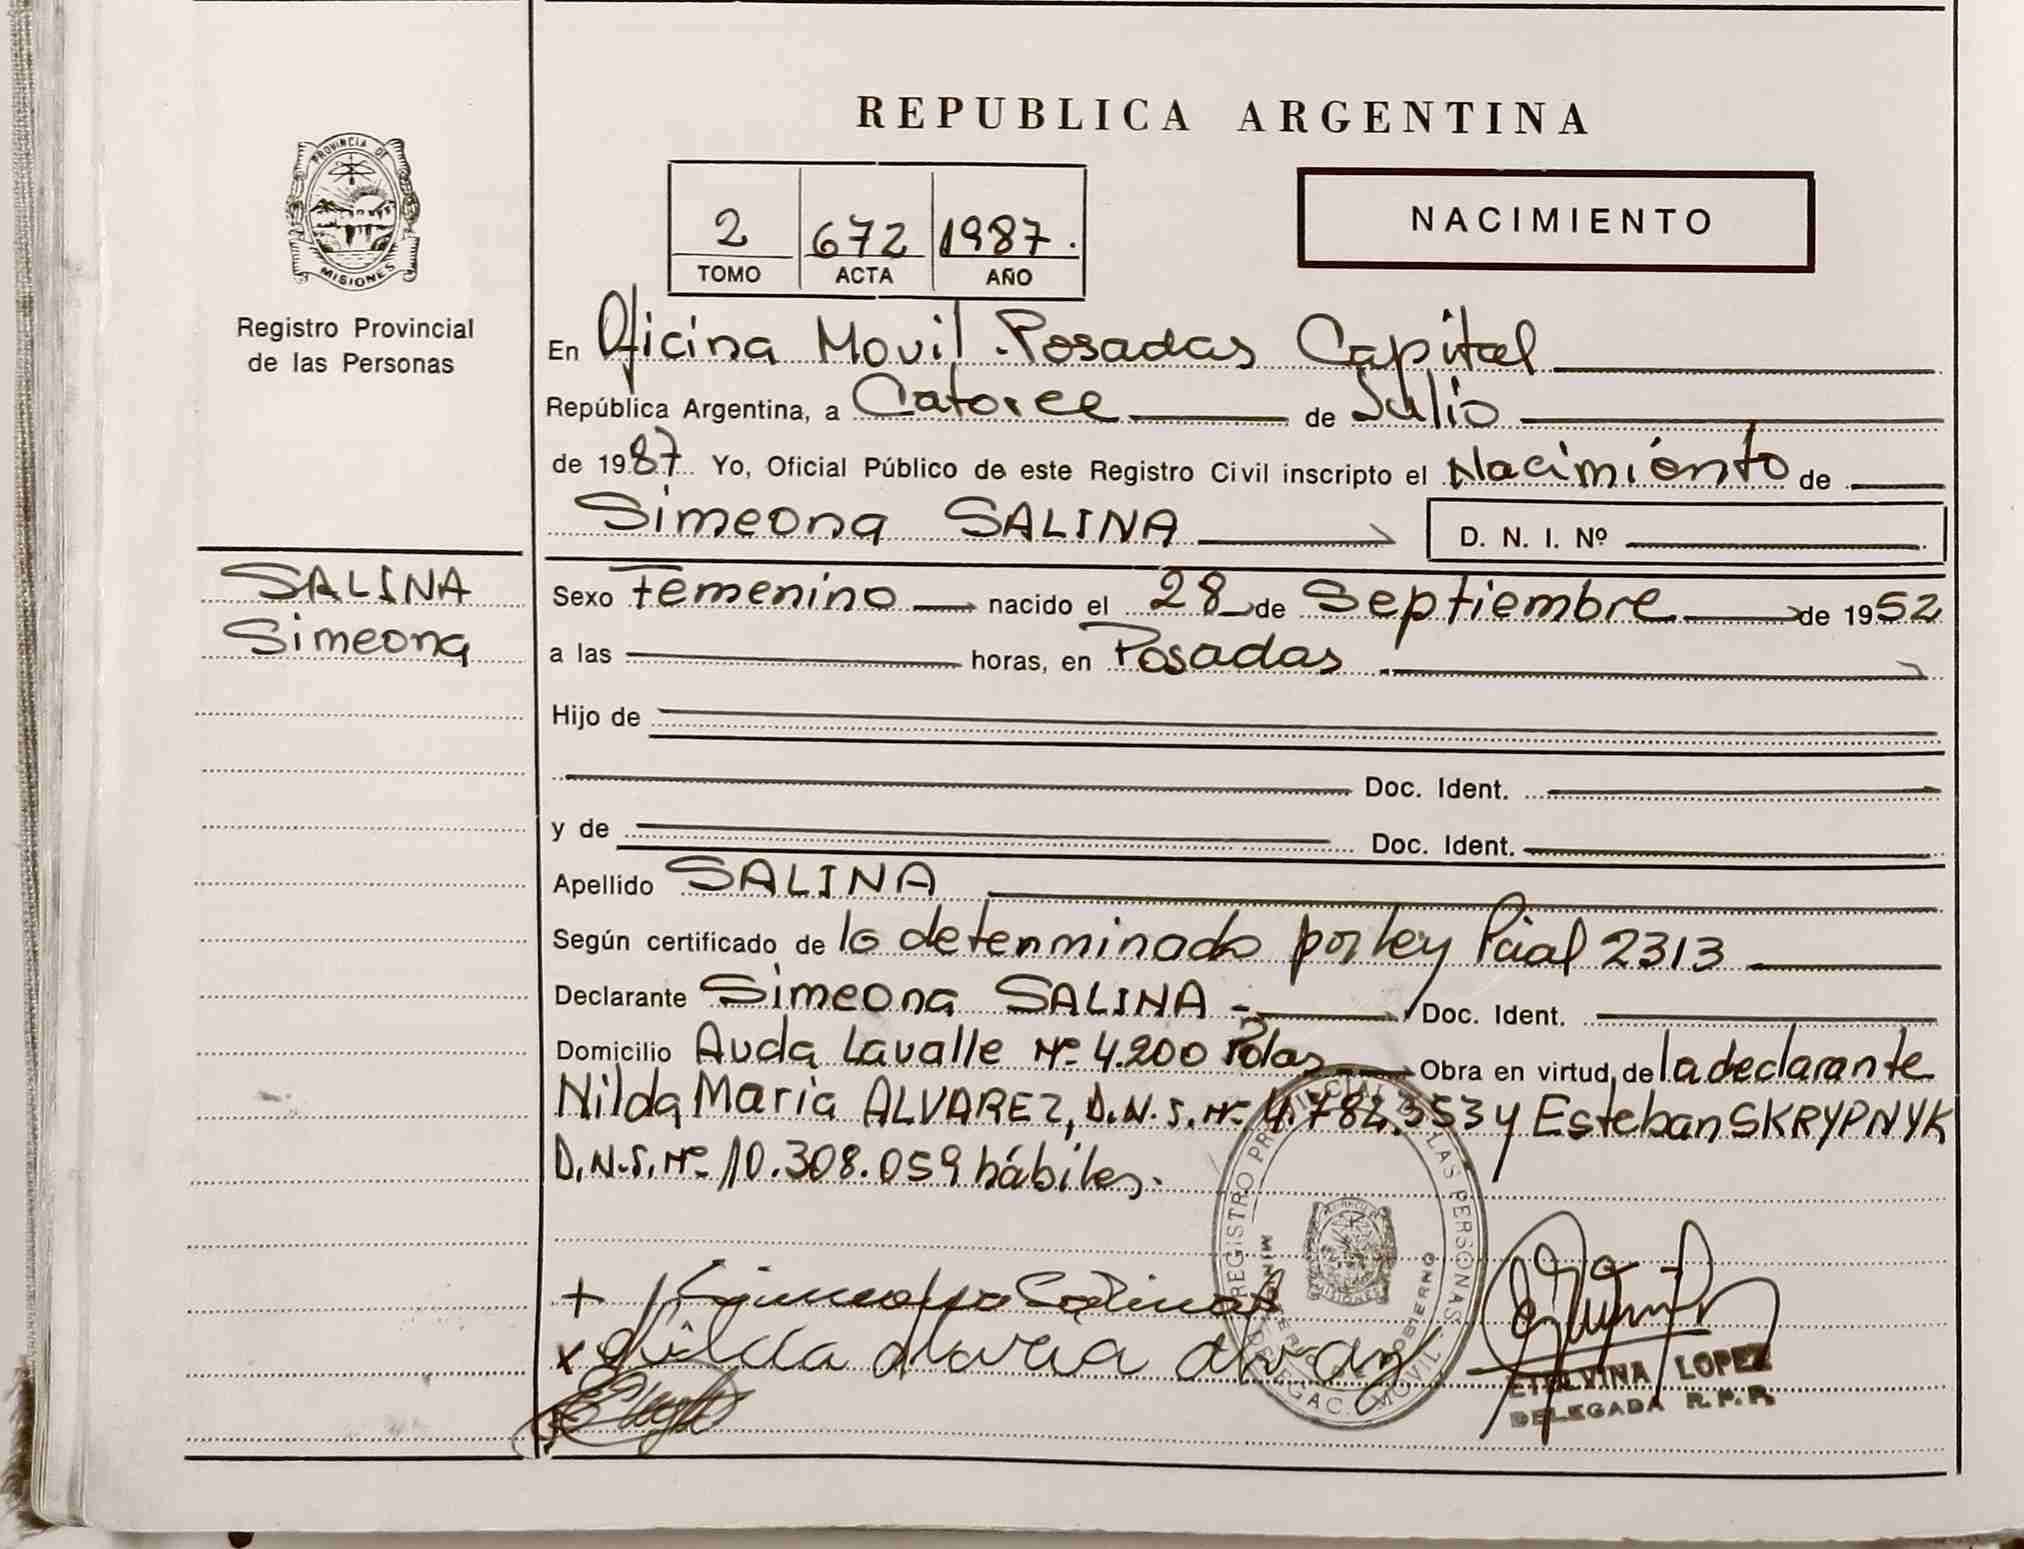 PROVINCIA DE
MISIONES
Registro Provincial
de las Personas
SALINA
Simeona
REPUBLICA ARGENTINA
2 672 1987.
TOMO ACTA AÑO
NACIMIENTO
En Oficina Movil Posadas Capital
República Argentina, a Catorce de Julio
de 1987 Yo, Oficial Público de este Registro Civil inscripto el Nacimiento de
Simeona SALINA D. N. I. Nº
Sexo Femenino nacido el 28 de Septiembre de 1952
a las horas, en Posadas
Hijo de
Doc. Ident.
y de Doc. Ident.
Apellido SALINA
Según certificado de lo determinado por ley Pcial 2313
Declarante Simeona SALINA - Doc. Ident.
Domicilio Avda Lavalle Nº 4.200 Pdas Obra en virtud de la declarante
Nilda Maria ALVAREZ, D.N.I. Nº 4.784.353 y Esteban SKRYPNYK
D.N.I. Nº 10.308.059 hábiles.
REGISTRO PROVINCIAL DE LAS PERSONAS
MINISTERIO DE GOBIERNO
DELEGAC. MOVIL
+ Simeona Salinas
x Nilda Maria Alvarez
ETELVINA LOPEZ
DELEGADA R.P.P.